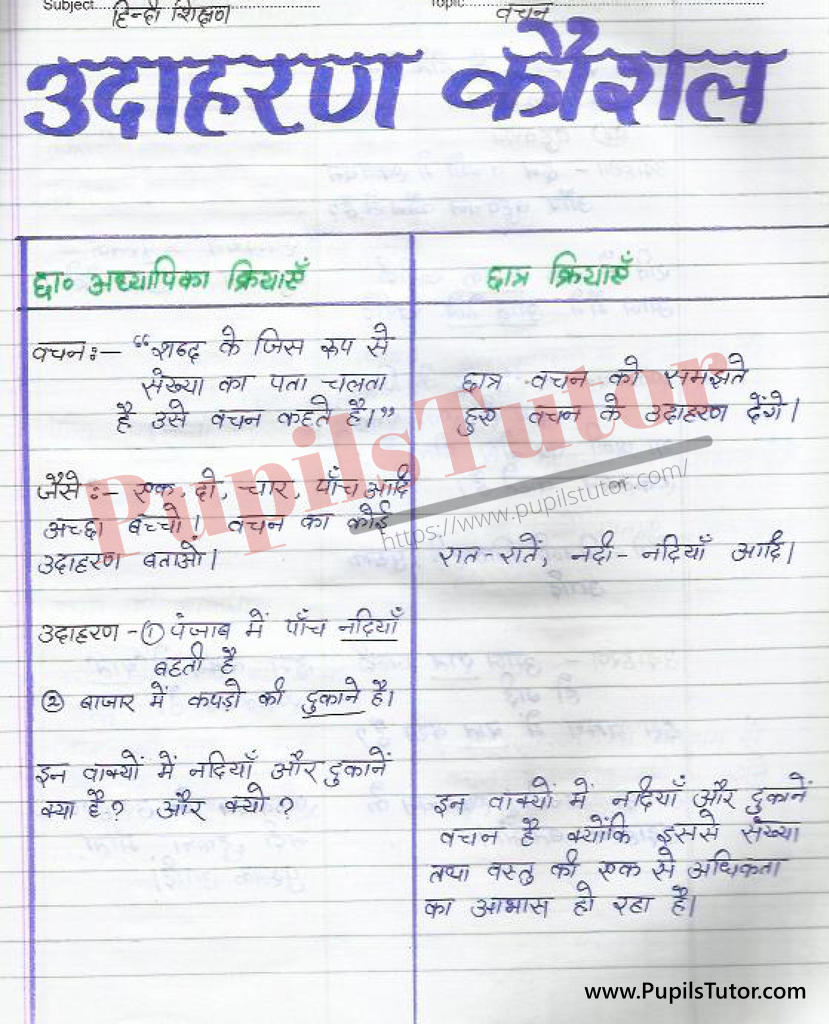 Subject....हिन्दी शिक्षण.... Topic....वचन....
उदाहरण कौशल
छा० अध्यापिका क्रियाएँ
वचनः- “शब्द के जिस रूप से
संख्या का पता चलता
है उसे वचन कहते है।”
जैसेः- एक, दो, चार, पाँच आदि
अच्छा बच्चो। वचन का कोई
उदाहरण बताओ।
उदाहरण - ① पंजाब में पाँच नदियाँ
बहती है
② बाजार में कपड़ो की दुकाने है।
इन वाक्यों में नदियाँ और दुकानें
क्या है? और क्यो?
छात्र क्रियाएँ
छात्र वचन को समझते
हुए वचन के उदाहरण देंगे।
रात-रातें, नदी-नदियाँ आदि।
इन वाक्यों में नदियाँ और दुकानें
वचन है क्योंकि इससे संख्या
तथा वस्तु की एक से अधिकता
का आभास हो रहा है।
PupilsTutor
https://www.pupilstutor.com/
www.PupilsTutor.com